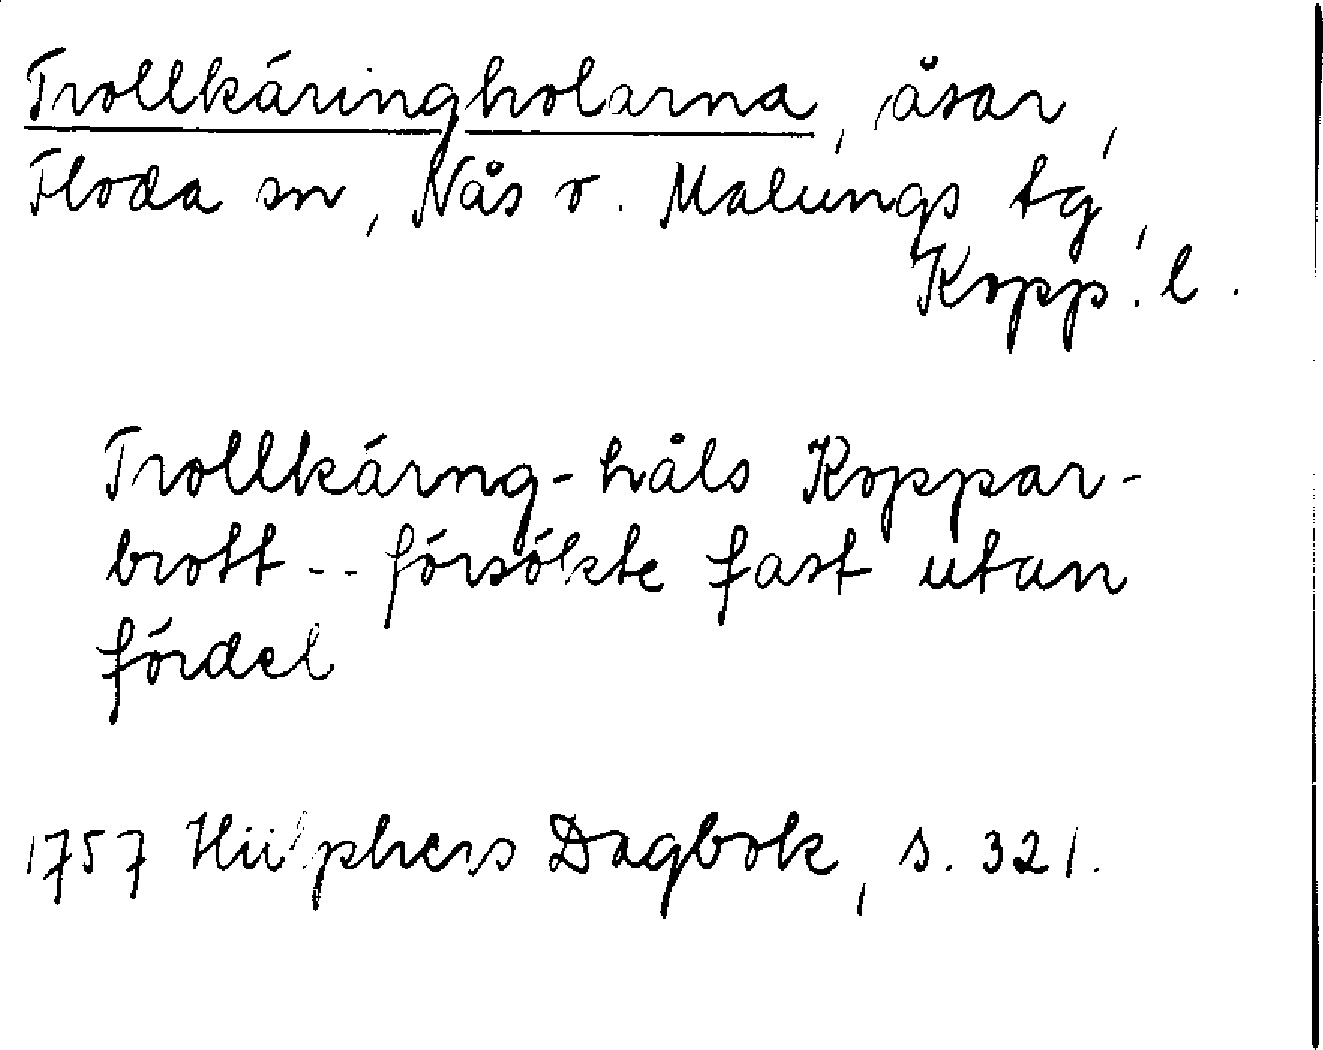 Trollkäringholarna, åsar,
Floda sn, Nås o. Malungs tg,
Kopp. l.
Trollkärng-håls Koppar-
brott -- försökte fast utan
fördel
1757 Hülphers Dagbok, s. 321.